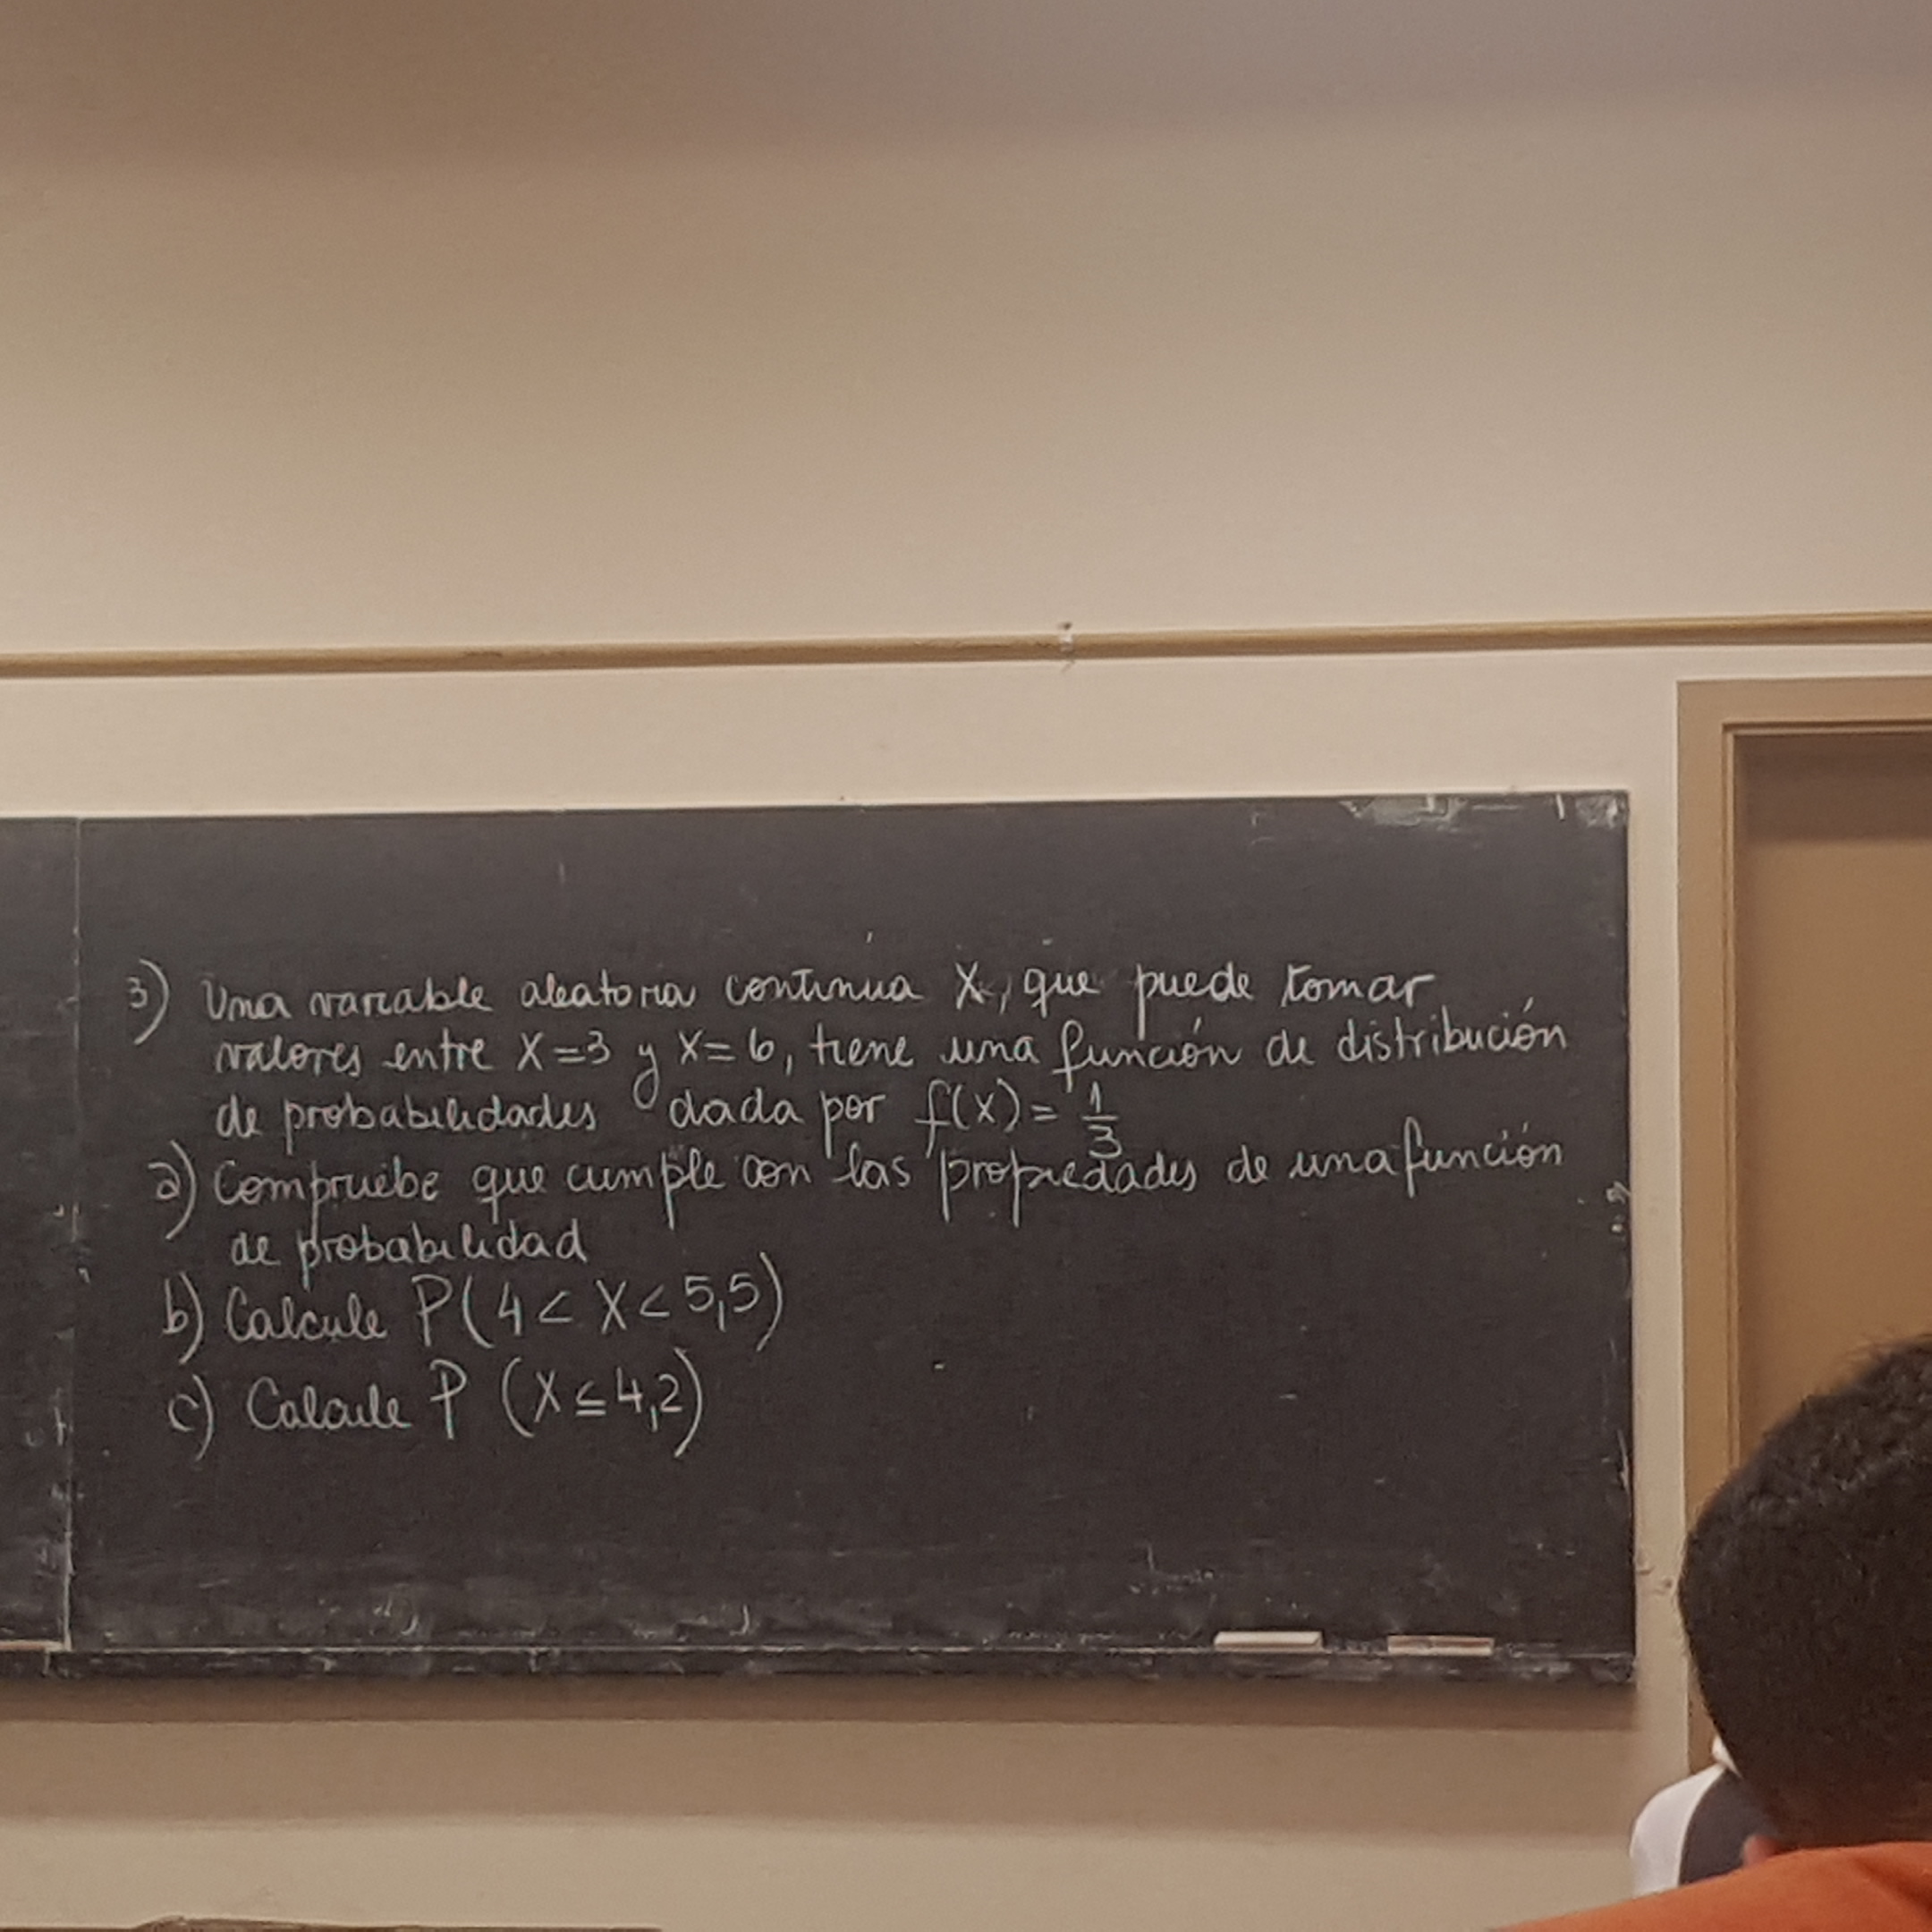 3) Una variable aleatoria continua X, que puede tomar
valores entre X=3 y X=6, tiene una función de distribución
de probabilidades dada por f(x) = 1/3
a) Compruebe que cumple con las propiedades de una función
de probabilidad
b) Calcule P(4 < X < 5,5)
c) Calcule P (X ≤ 4,2)